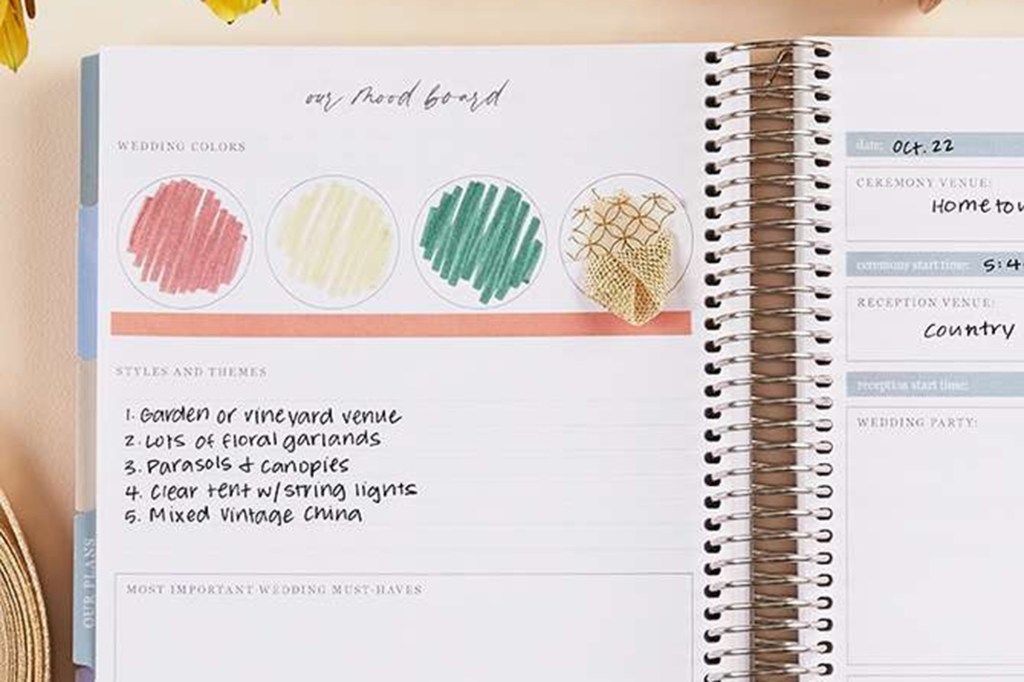 our mood board
WEDDING COLORS
STYLES AND THEMES
1. Garden or vineyard venue
2. Lots of floral garlands
3. Parasols & canopies
4. Clear tent w/string lights
5. Mixed Vintage China
MOST IMPORTANT WEDDING MUST-HAVES
OUR PLANS
date: Oct. 22
CEREMONY VENUE:
ceremony start time:
RECEPTION VENUE:
Country
reception start time:
WEDDING PARTY: